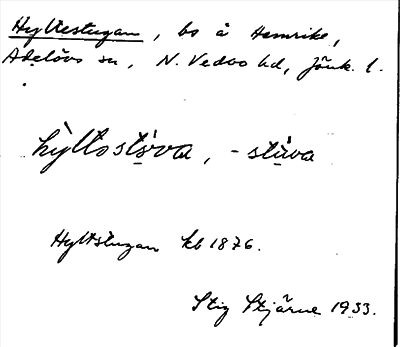 Hyltestugan, bs å Hemrike,
Adelövs sn, N. Vedbo hd, Jönk. l.
hỳltosts̀va, -stùva
Hyltstugan kb 1876.
Stig Stjärne 1933.